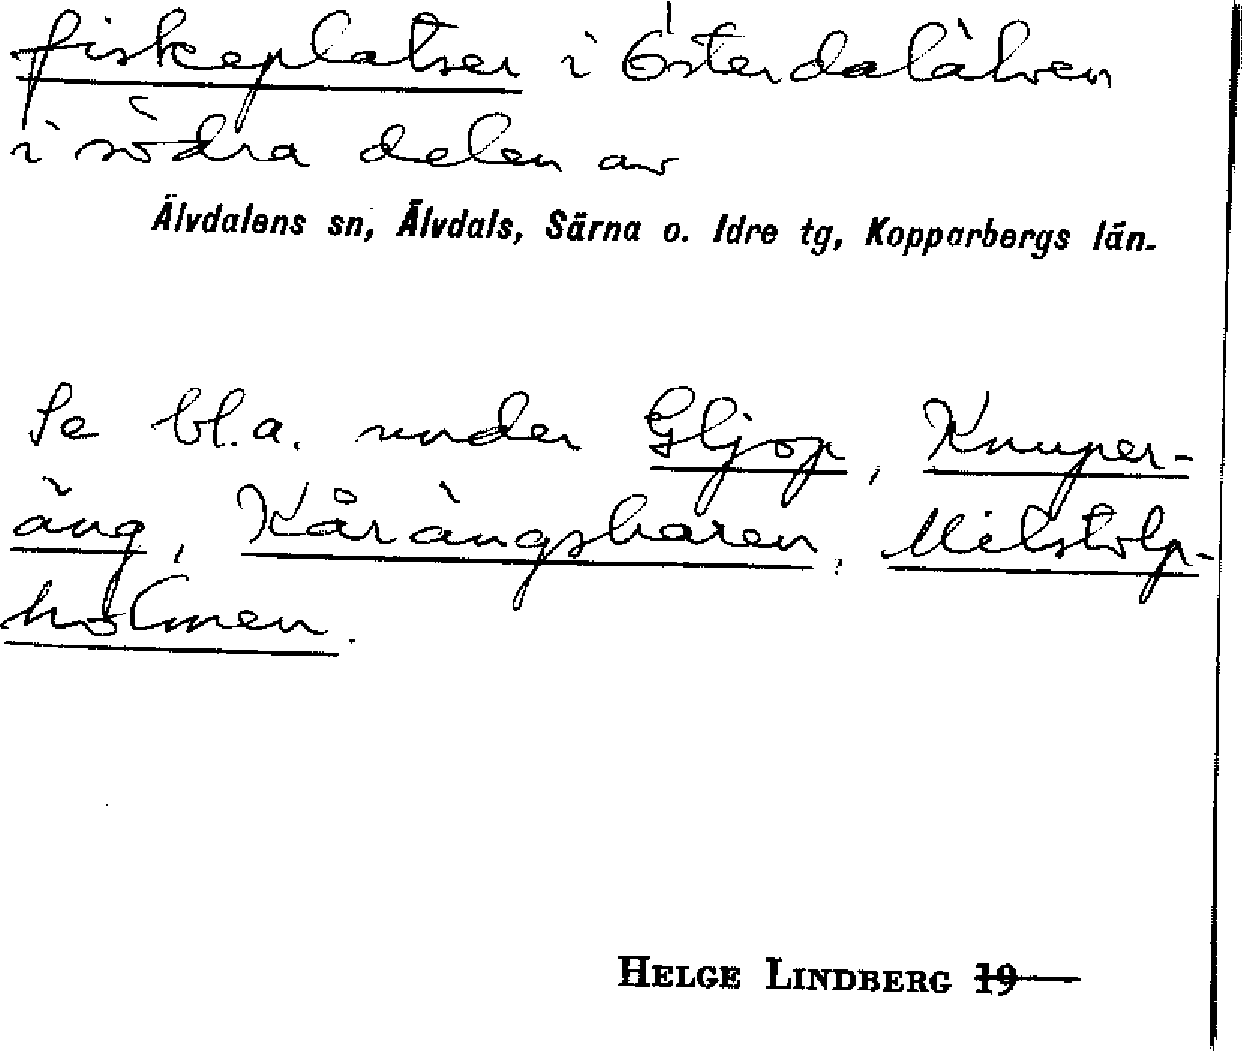 fiskeplatser i Österdalälven
i södra delen av
Älvdalens sn, Älvdals, Särna o. Idre tg, Kopparbergs län.
Se bl.a. under Gljop, Knuper-
äng, Kårängsharen, Milstolp-
holmen.
HELGE LINDBERG 19